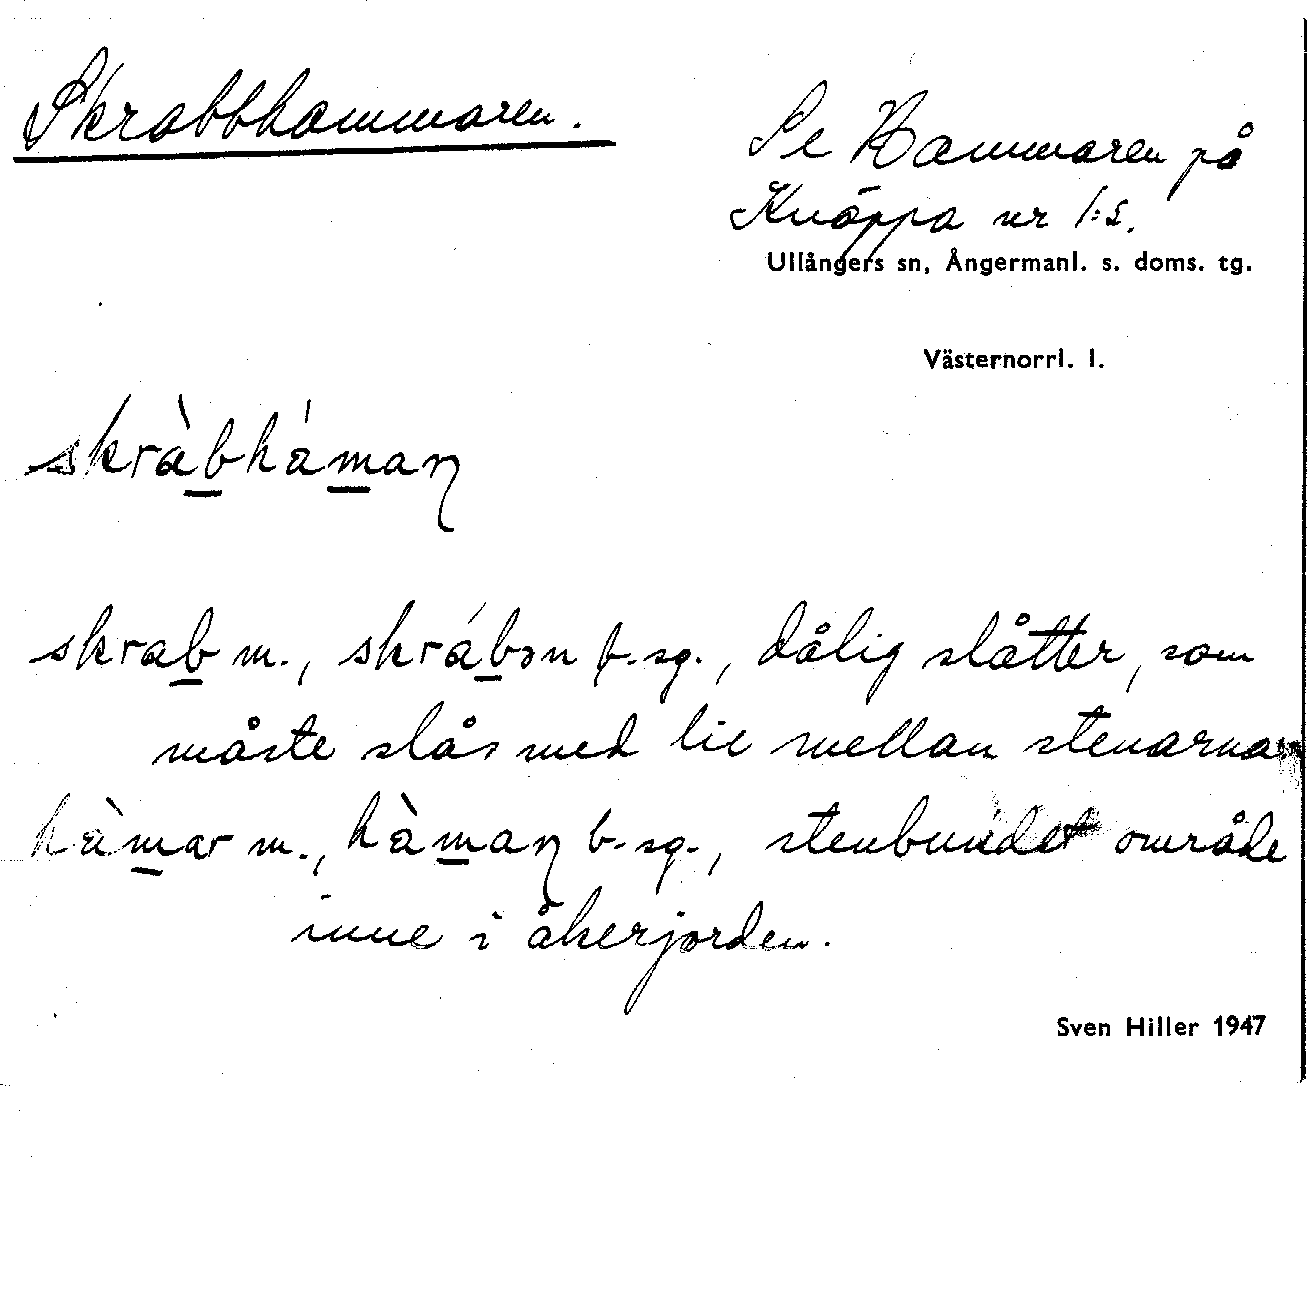 Skrabbhammaren.
Se Hammaren på
Knäppa nr 1:2.
Ullångers sn, Ångermanl. s. doms. tg.
Västernorrl. l.
skràb̲há̲m̲aɳ
skrab̲ m., skráb̲ən b. sg., dålig slåtter, som
måste slås med lie mellan stenarna
hàm̲ar m., hàm̲aɳ b. sg., stenbundet område
inne i åkerjorden.
Sven Hiller 1947